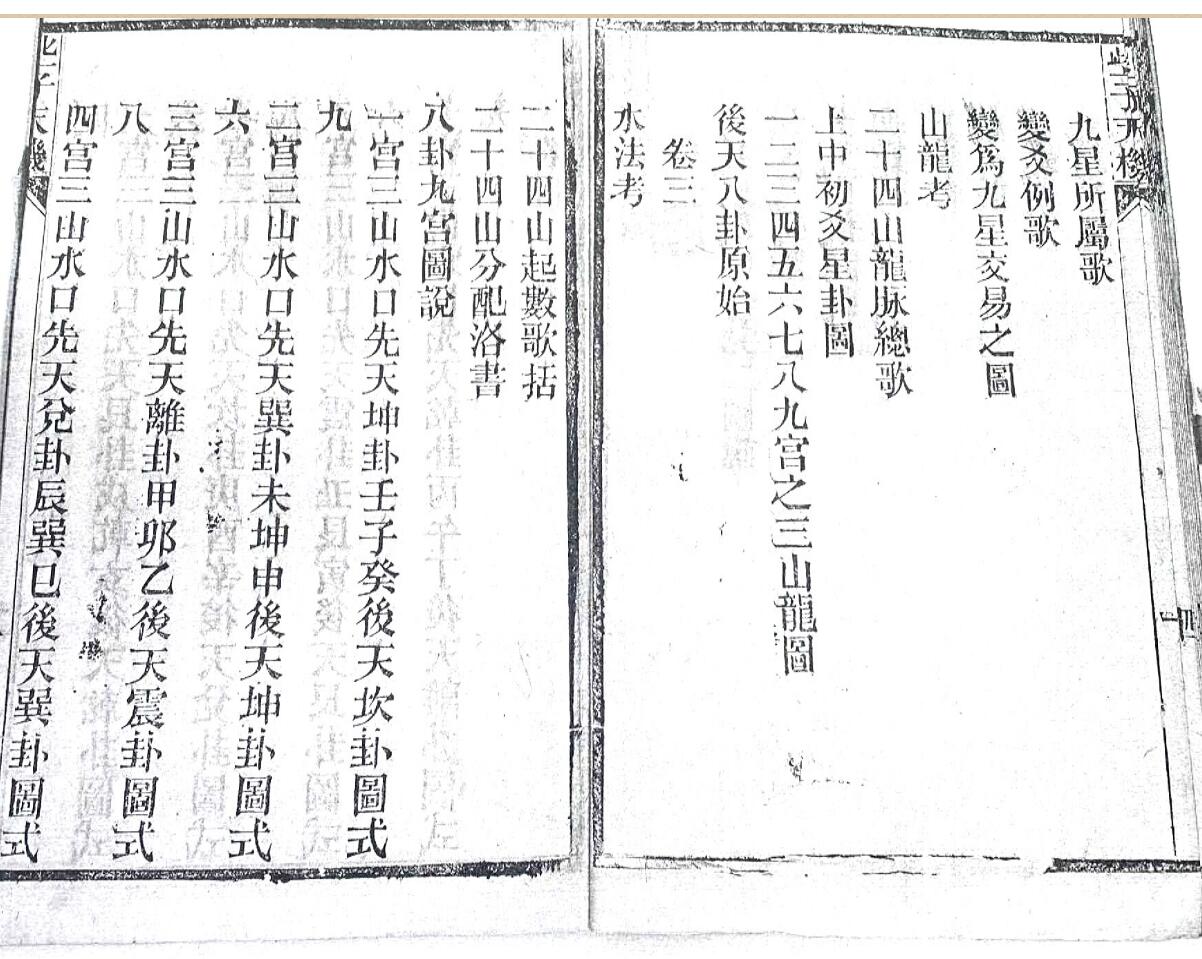 九星所屬歌
變爻例歌
變爲九星交易之圖
山龍考
二十四山龍脉總歌
上中初爻星卦圖
一二三四五六七八九宮之三山龍圖
後天八卦原始
卷三
水法考
四
二十四山起數歌括
二十四山分配洛書
八卦九宮圖說
一宮三山水口先天坤卦壬子癸後天坎卦圖式
九
二宮三山水口先天巽卦未坤申後天坤卦圖式
六
三宮三山水口先天離卦甲卯乙後天震卦圖式
八
四宮三山水口先天兌卦辰巽巳後天巽卦圖式